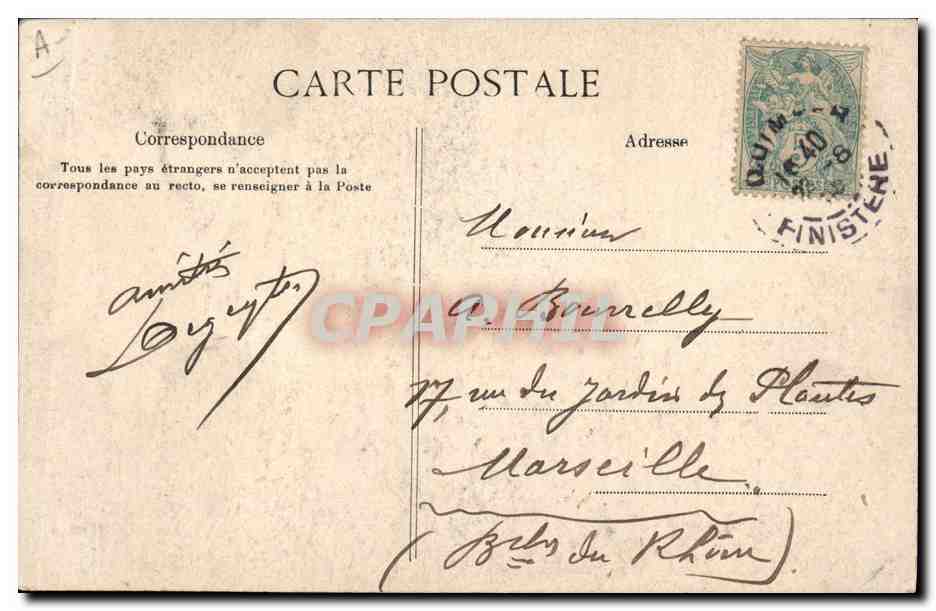 A-
CARTE POSTALE
Correspondance
Tous les pays étrangers n'acceptent pas la
correspondance au recto, se renseigner à la Poste
amitiés
Adresse
QUIMPER
18 40
FINISTERE
Monsieur
A. Bourrelly
17, rue du Jardin des Plantes
Marseille
(Bches du Rhône)
CPAPHIL